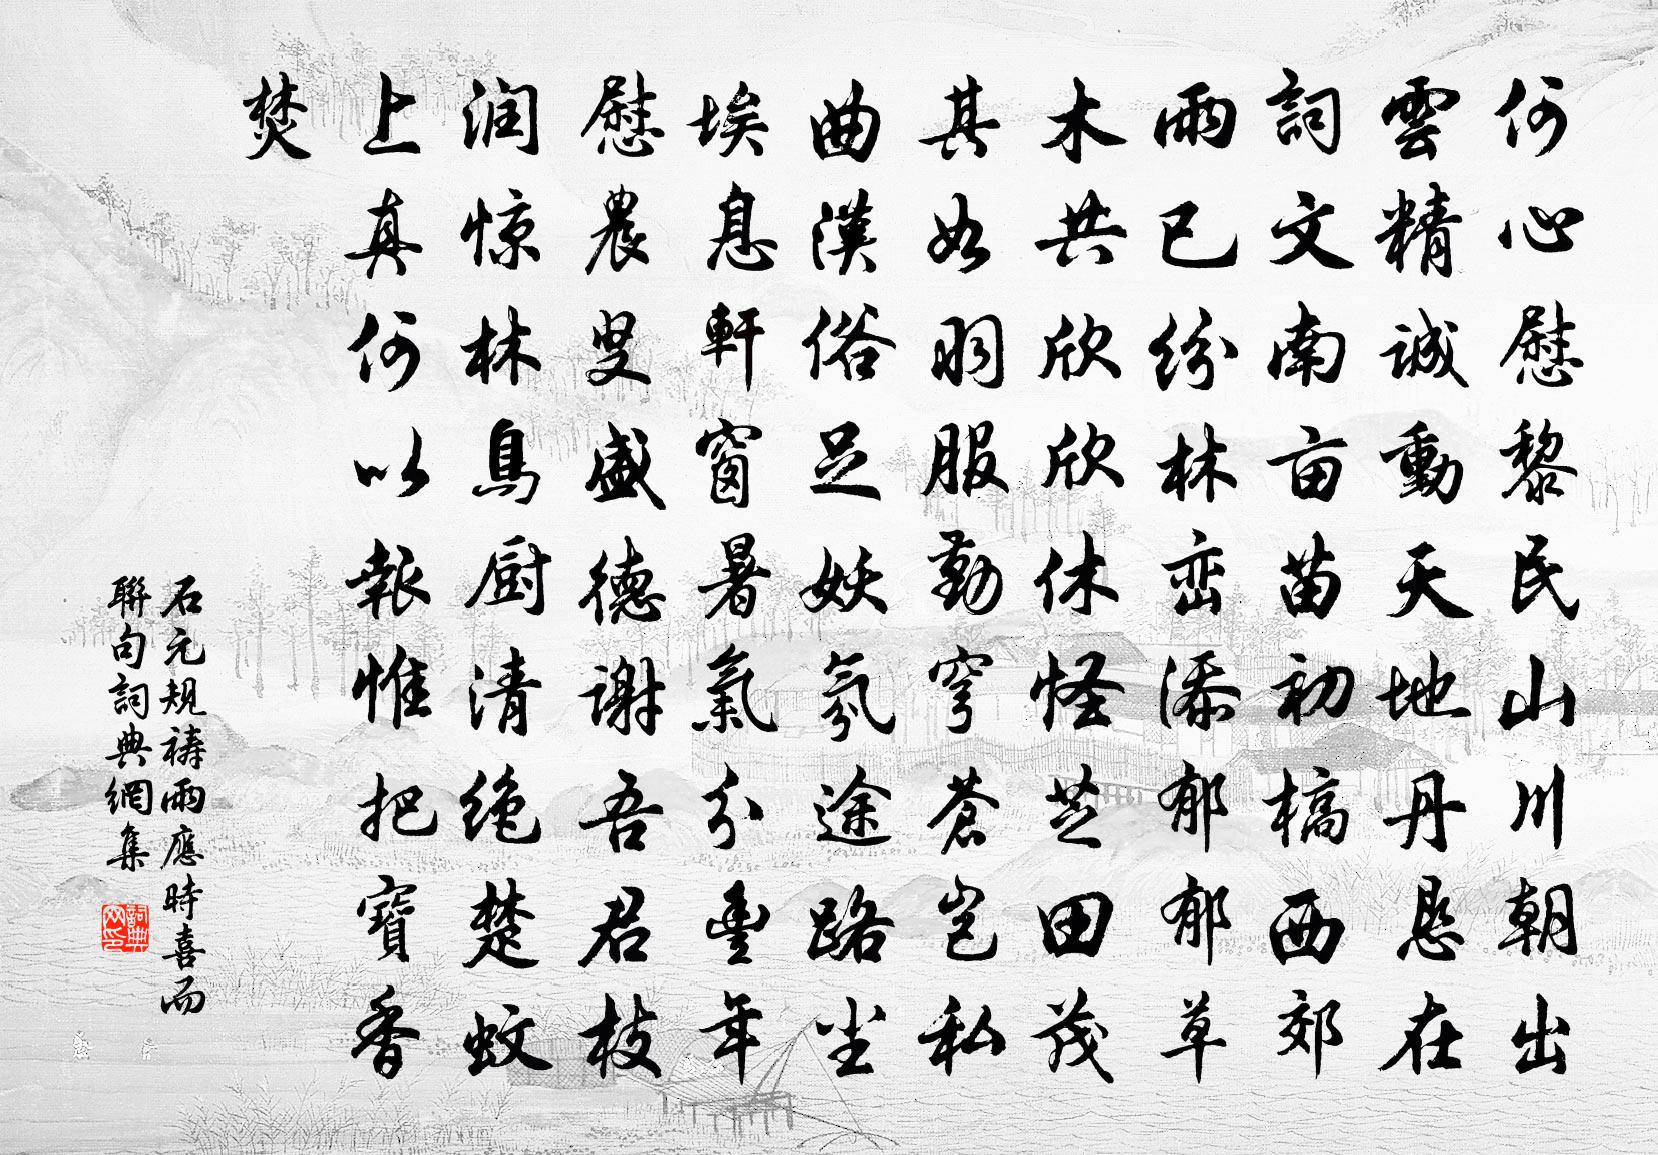 何心慰黎民山川朝出
雲精誠動天地丹懇在
詞文南亩苗初槁西郊
雨已紛林巒添郁郁草
木共欣欣休怪芝田茂
其如羽服勤穹蒼豈私
曲漢俗足妖氛途路尘
埃息軒窗暑氣分豐年
慰農叟盛德谢吾君枝
润惊林鳥厨清绝楚蚊
上真何以報惟把寶香
焚
石元規祷雨應時喜而
聯句詞典網集
詞典网印